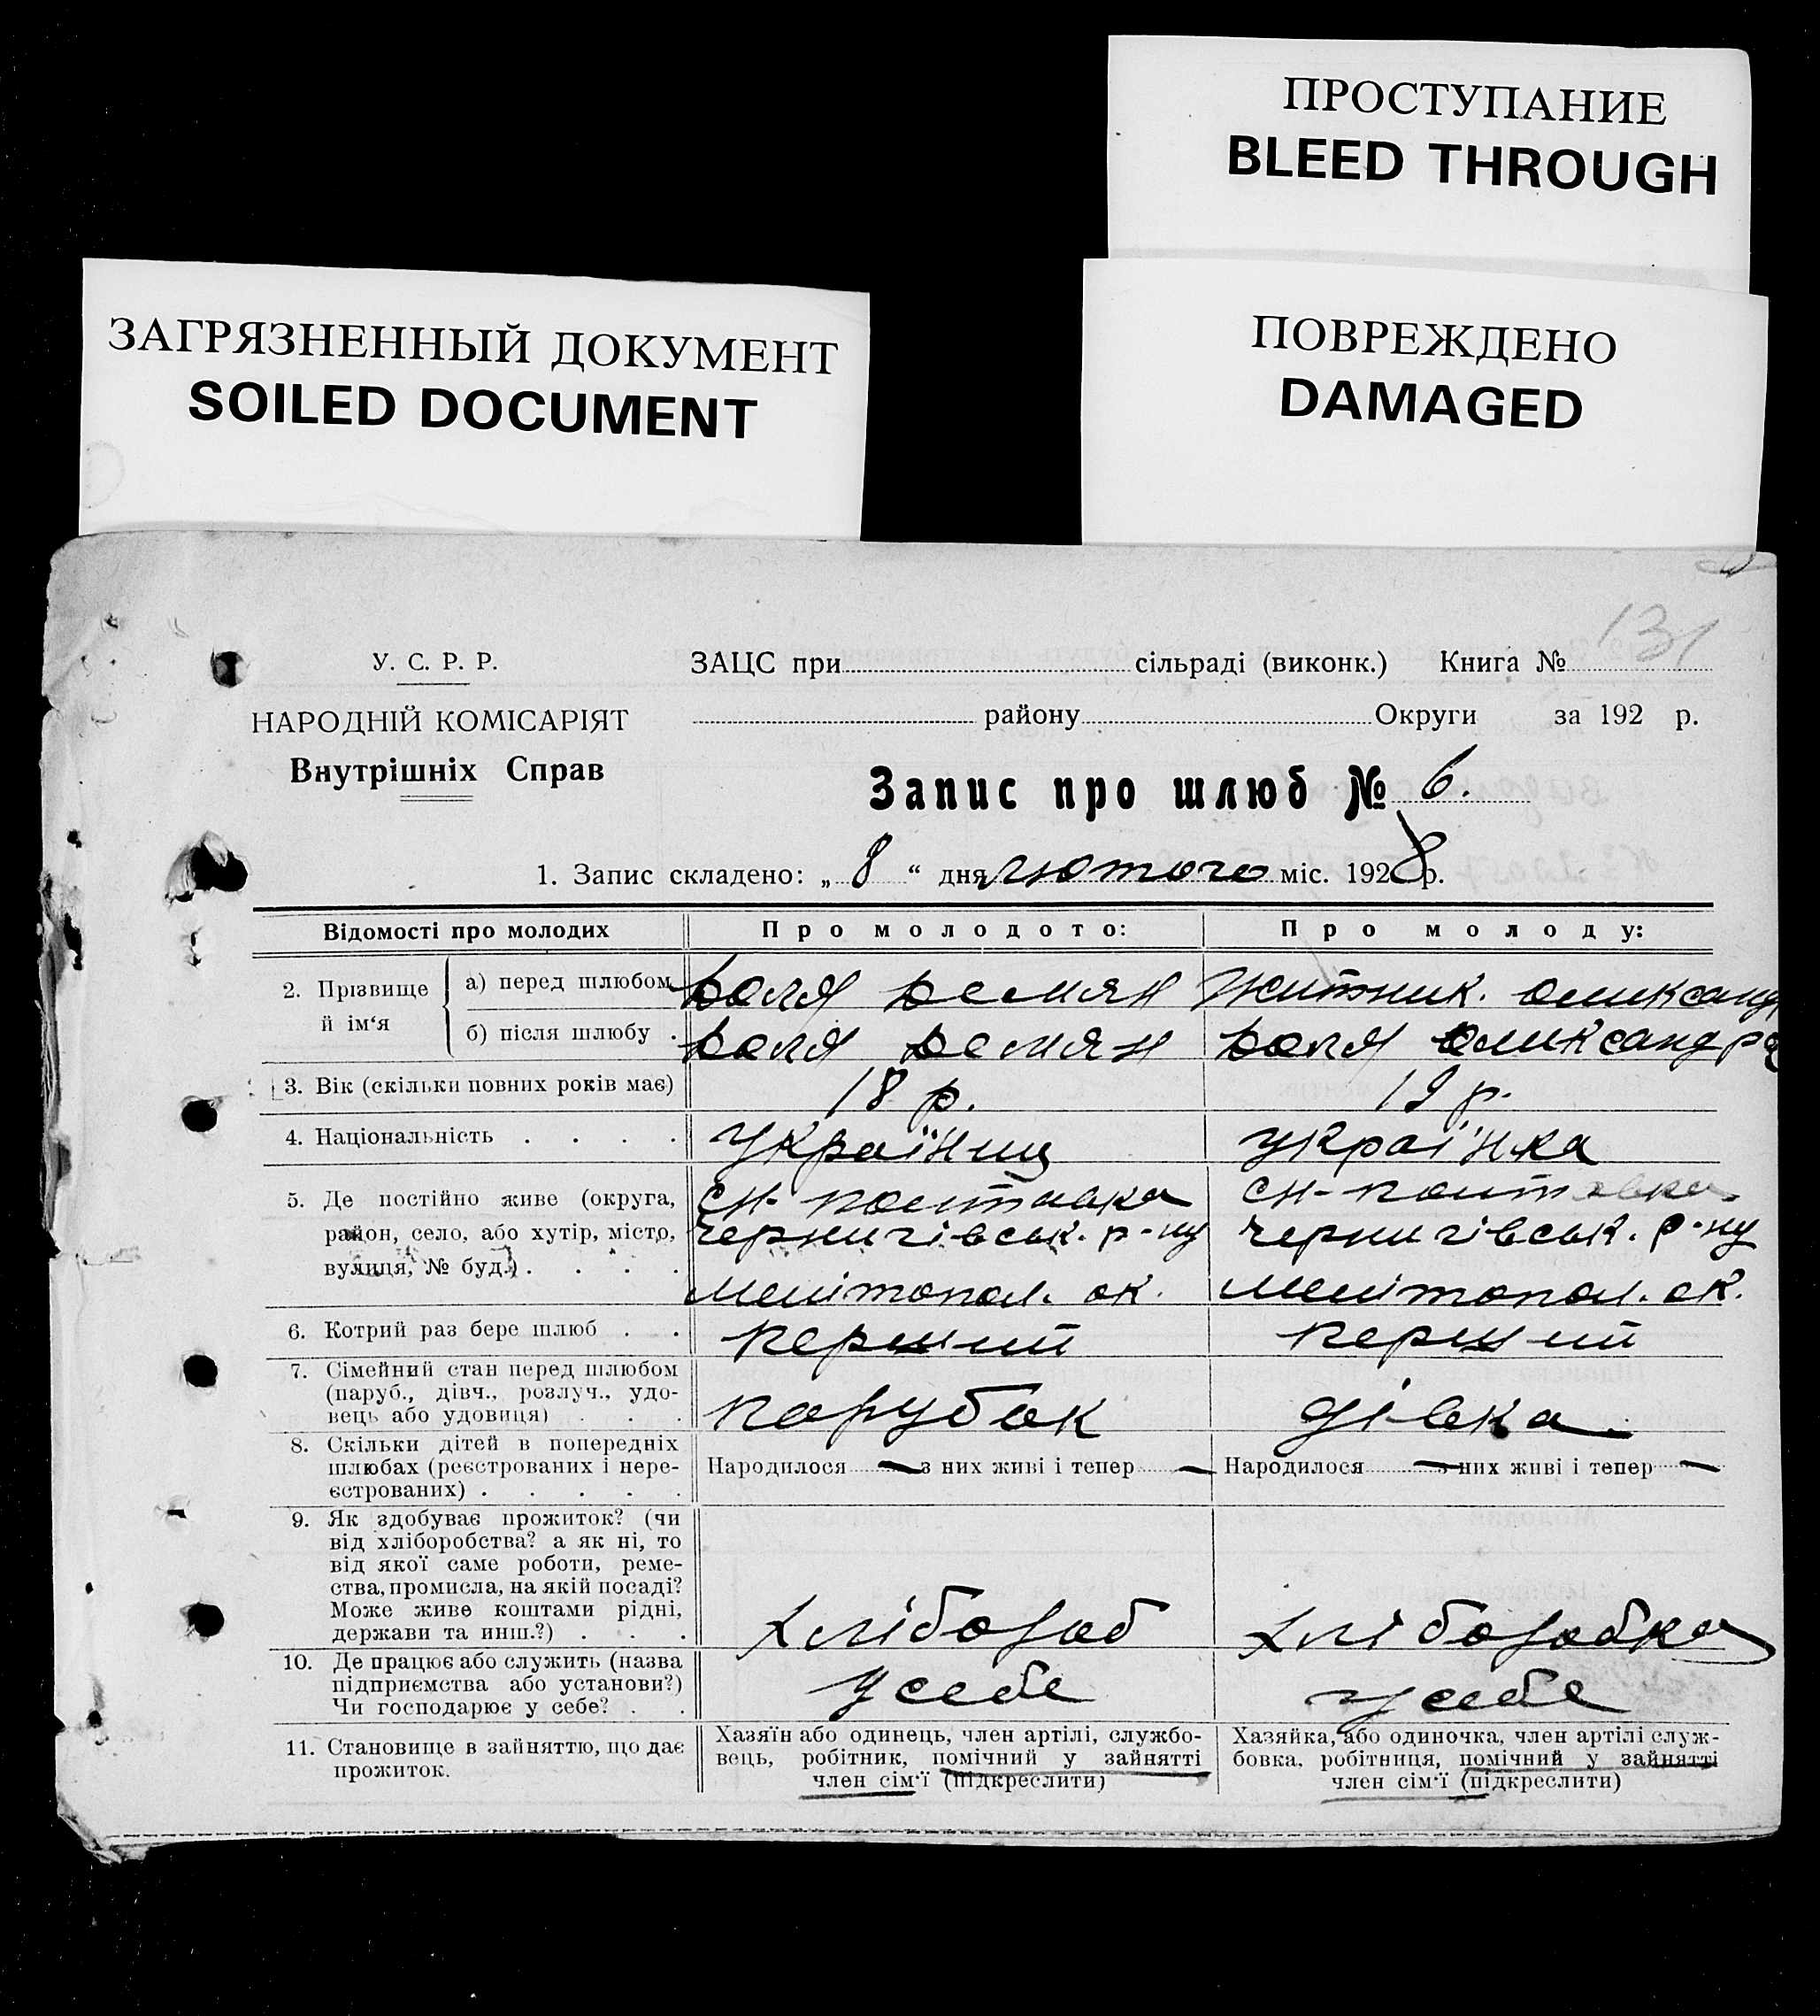 ПРОСТУПАНИЕ
BLEED THROUGH
ЗАГРЯЗНЕННЫЙ ДОКУМЕНТ
SOILED DOCUMENT
ПОВРЕЖДЕНО
DAMAGED
131
У. С. Р. Р.
НАРОДНІЙ КОМІСАРІЯТ
Внутрішніх Справ
ЗАЦС при сільраді (виконк.) Книга №
району Округи за 192 р.
Запис про шлюб № 6.
1. Запис складено: „ 8 “ дня лютого міс. 1928 р.
Відомості про молодих Про молодого: Про молоду:
2. Прізвище й ім‘я
а) перед шлюбом Доля Демян Житник. Оликсанд
б) після шлюбу . Доля Демян Доля Оликсандра
3. Вік (скільки повних років має) 18 р. 19 р.
4. Національність . . . . Українц Українка
5. Де постійно живе (округа, район, село, або хутір, місто, вулиця, № буд.) . . . .
сн- Полтавка
Черниговськ. р-ну
Мелітопол. ок.
сн- Полтавка
Чернигівськ. р-ну
Мелітопол. ок.
6. Котрий раз бере шлюб . . перший перший
7. Сімейний стан перед шлюбом
(паруб., дівч., розлуч., удо-
вець або удовиця) . . . парубок дівка
8. Скільки дітей в попередніх
шлюбах (реєстрованих і нере-
єстрованих) . . . . .
Народилося — з них живі і тепер —
Народилося — з них живі і тепер —
9. Як здобуває прожиток? (чи
від хліборобства? а як ні, то
від якої саме роботи, реме-
ства, промисла, на якій посаді?
Може живе коштами рідні,
держави та инш.?) . . . хлібороб хліборобка
10. Де працює або служить (назва
підприємства або установи?)
Чи господарює у себе? . . у себе у себе
11. Становище в зайняттю, що дає
прожиток.
Хазяїн або одинець, член артілі, службо-
вець, робітник, помічний у зайнятті
член сім‘ї (підкреслити)
Хазяйка, або одиночка, член артілі служ-
бовка, робітниця, помічний у зайнятті
член сім‘ї (підкреслити)